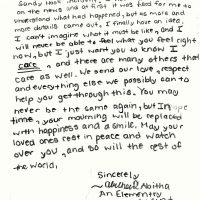 Sandy Hook
on the news and at first it was hard for me to
understand what had happened, but as more and
more details came out, I finally have an idea.
I can't imagine what it must be like, and I
will never be able to feel what you feel right
now, but I just want you to know I
care, and there are many others that
care as well. We send our love, respect
and everything else we possibly can to
help you get through this. You may
never be the same again, but in
time, your mourning will be replaced
with happiness and a smile. May your
loved ones rest in peace and watch
over you, and so will the rest of
the world.
Sincerely
Abitha
An Elementry